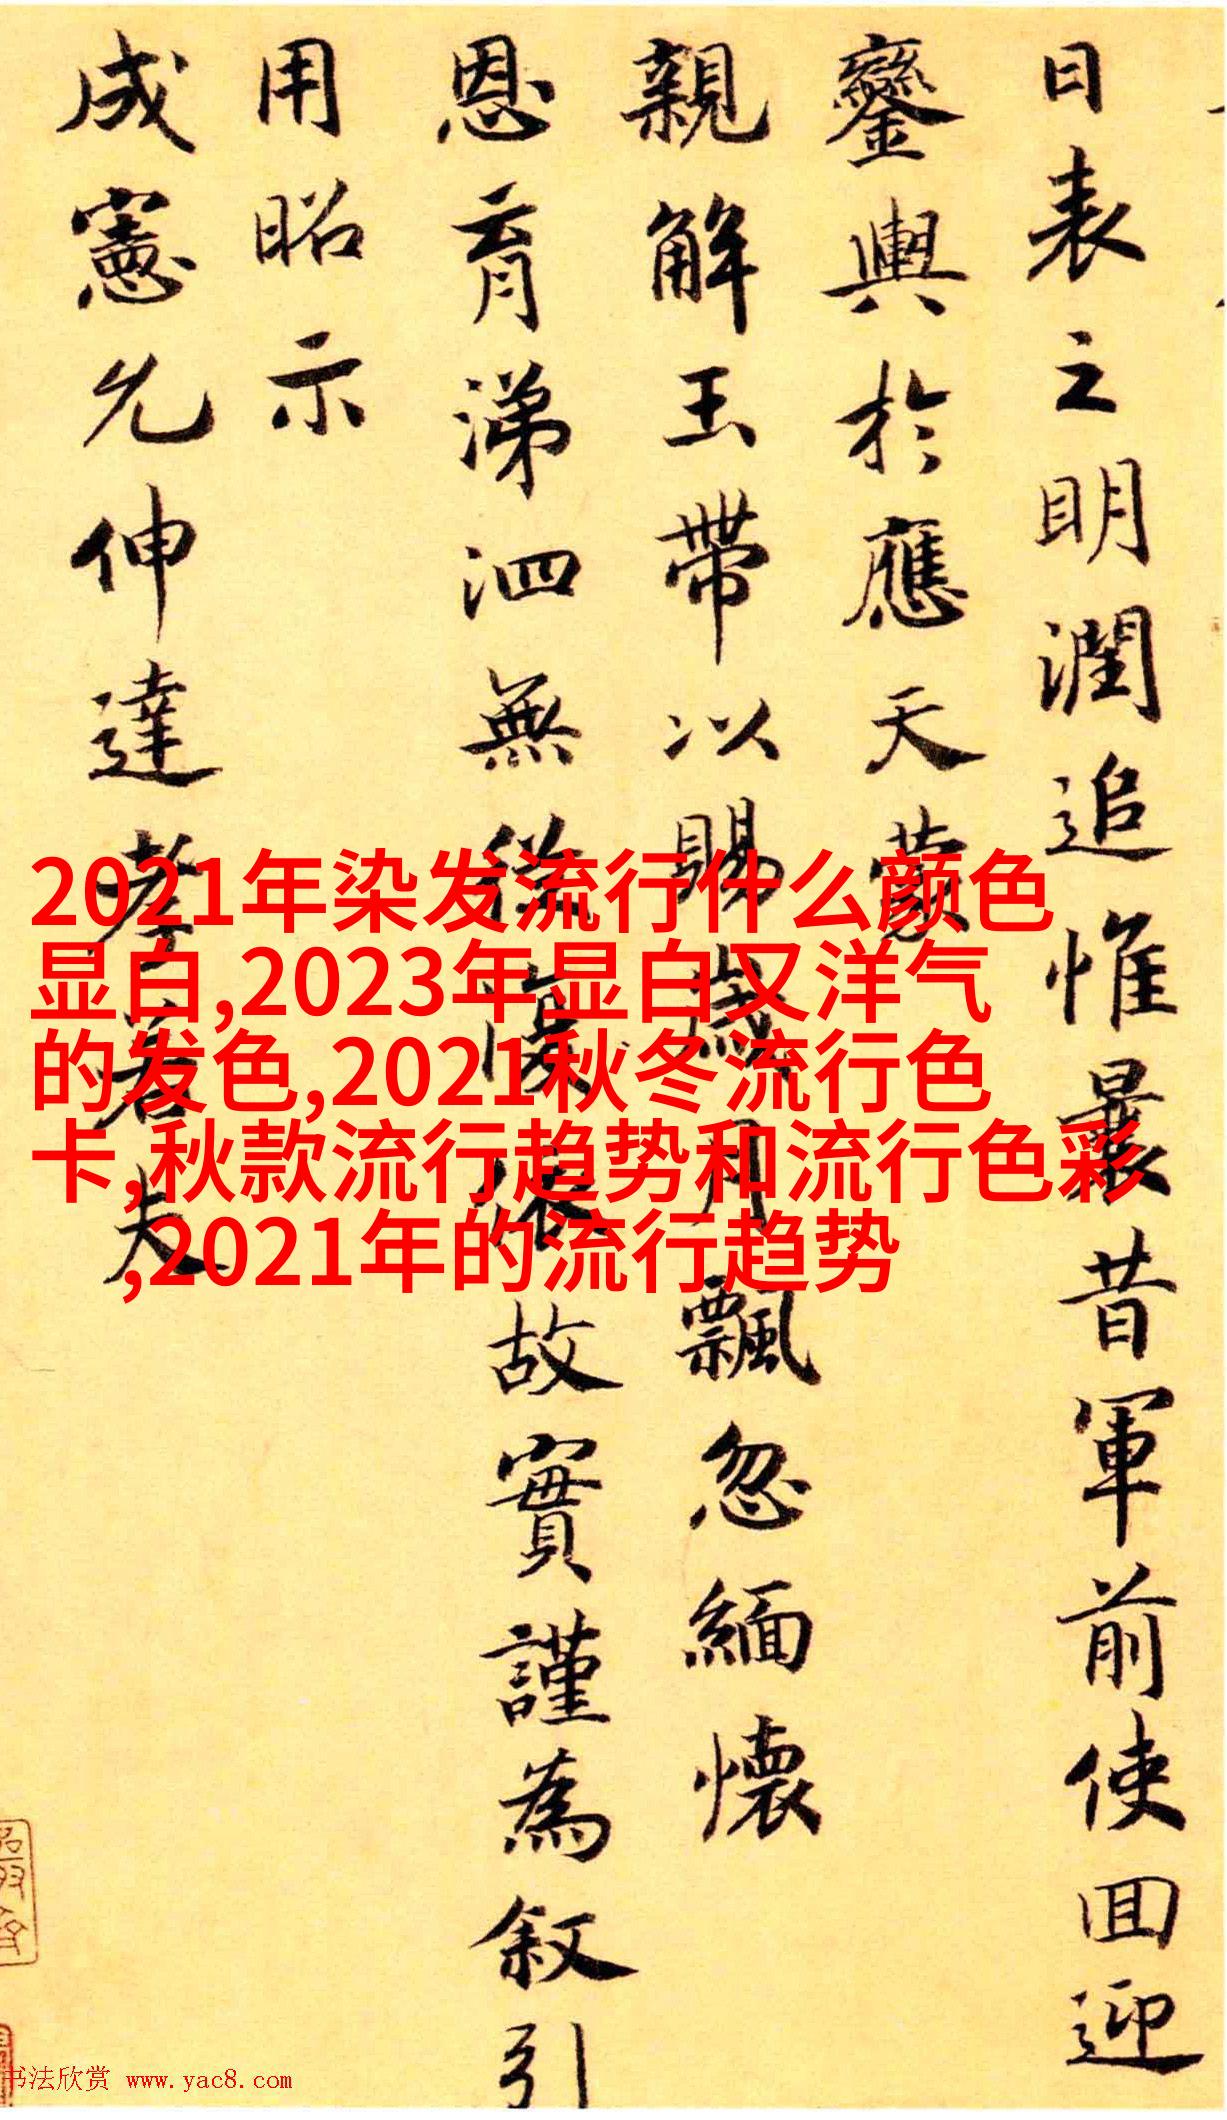 日表之明潤追惟曩昔軍前使囬迎
鑾輿於應天蒙
親解玉帶以賜歲月飄忽緬懷
恩育涕泗無從故實謹為叙引
用昭示
成憲允伸達孝若夫
2021年染发流行什么颜色
显白,2023年显白又洋气
的发色,2021秋冬流行色
卡,秋款流行趋势和流行色彩
,2021年的流行趋势
书法欣赏 www.yac8.com